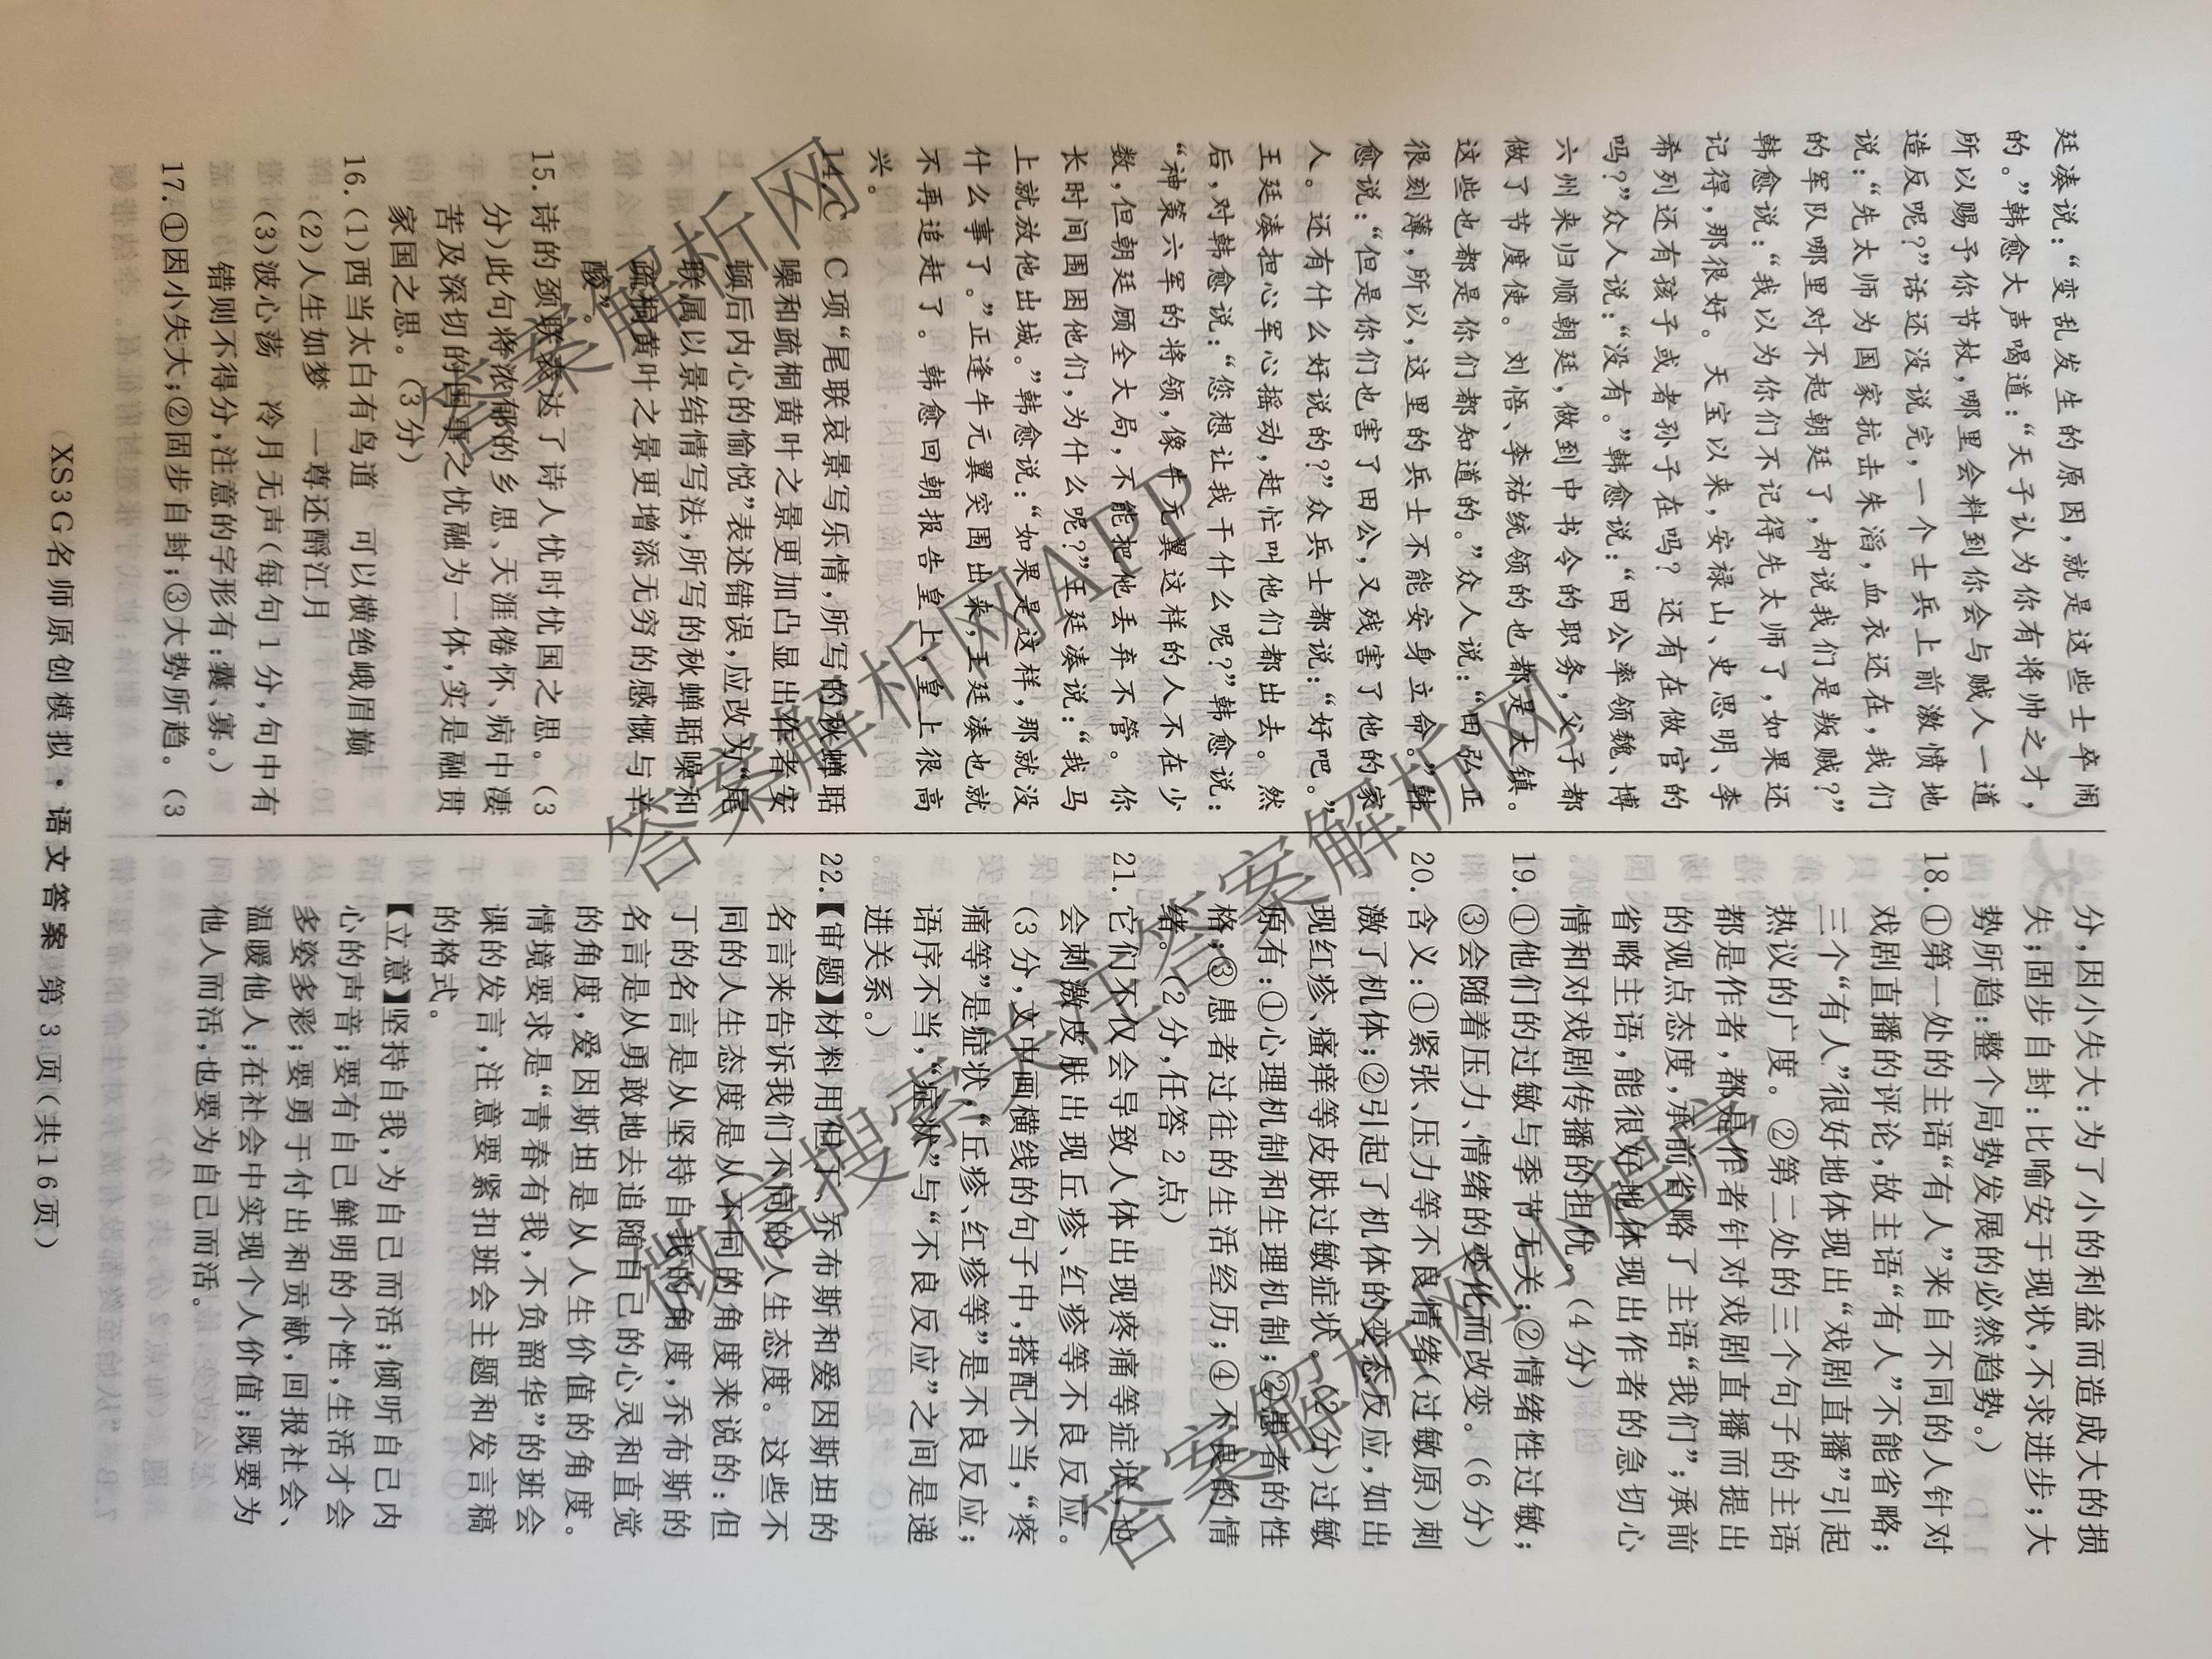 廷凑说：“变乱发生的原因，就是这些士卒闹
的。”韩愈大声喝道：“天子认为你有将帅之才，
所以赐予你节杖，哪里会料到你会与贼人一道
造反呢？”话还没说完，一个士兵上前激愤地
说：“先太师为国家抗击朱滔，血衣还在，我们
的军队哪里对不起朝廷了，却说我们是叛贼？”
韩愈说：“我以为你们不记得先太师了，如果还
记得，那很好。天宝以来，安禄山、史思明、李
希列还有孩子或者孙子在吗？还有在做官的
吗？”众人说：“没有。”韩愈说：“田公率领魏、博
六州来归顺朝廷，做到中书令的职务，父子都
做了节度使。刘悟、李祐统领的也都是大镇。
这些也都是你们都知道的。”众人说：“田弘正
很刻薄，所以，这里的兵士不能安身立命。”韩
愈说：“但是你们也害了田公，又残害了他的家
人。还有什么好说的？”众兵士都说：“好吧。”
王廷凑担心军心摇动，赶忙叫他们都出去。然
后，对韩愈说：“您想让我干什么呢？”韩愈说：
“神策六军的将领，像牛元翼这样的人不在少
数，但朝廷顾全大局，不能把他丢弃不管。你
长时间围困他们，为什么呢？”王廷凑说：“我马
上就放他出城。”韩愈说：“如果是这样，那就没
什么事了。”正逢牛元翼突围出来，王廷凑也就
不再追赶了。韩愈回朝报告皇上，皇上很高
兴。
14. C　C项“尾联哀景写乐情，所写的秋蝉聒
噪和疏桐黄叶之景更加凸显出作者安
顿后内心的愉悦”表述错误，应改为“尾
联属以景结情写法，所写的秋蝉聒噪和
疏桐黄叶之景更增添无穷的感慨与辛
酸”。
15. 诗的颈联表达了诗人忧时忧国之思。（3
分）此句将浓郁的乡思、天涯倦怀、病中凄
苦及深切的国事之忧融为一体，实是融贯
家国之思。（3分）
16.（1）西当太白有鸟道　可以横绝峨眉巅
（2）人生如梦　一尊还酹江月
（3）波心荡　冷月无声（每句1分，句中有
错则不得分，注意的字形有：囊、寡。）
17. ①因小失大；②固步自封；③大势所趋。（3
分，因小失大：为了小的利益而造成大的损
失；固步自封：比喻安于现状，不求进步；大
势所趋：整个局势发展的必然趋势。）
18. ①第一处的主语“有人”来自不同的人针对
戏剧直播的评论，故主语“有人”不能省略；
三个“有人”很好地体现出“戏剧直播”引起
热议的广度。②第二处的三个句子的主语
都是作者，都是作者针对戏剧直播而提出
的观点态度，承前省略了主语“我们”；承前
省略主语，能很好地体现出作者的急切心
情和对戏剧传播的担忧。（4分）
19. ①他们的过敏与季节无关；②情绪性过敏；
③会随着压力、情绪的变化而改变。（6分）
20. 含义：①紧张、压力等不良情绪（过敏原）刺
激了机体；②引起了机体的变态反应，如出
现红疹、瘙痒等皮肤过敏症状。（2分）过敏
原有：①心理机制和生理机制；②患者的性
格；③患者过往的生活经历；④不良的情
绪。（2分，任答2点）
21. 它们不仅会导致人体出现疼痛等症状，也
会刺激皮肤出现丘疹、红疹等不良反应。
（3分，文中画横线的句子中，搭配不当，“疼
痛等”是症状，“丘疹、红疹等”是不良反应；
语序不当，“症状”与“不良反应”之间是递
进关系。）
22.【审题】材料用但丁、乔布斯和爱因斯坦的
名言来告诉我们不同的人生态度。这些不
同的人生态度是从不同的角度来说的：但
丁的名言是从坚持自我的角度，乔布斯的
名言是从勇敢地去追随自己的心灵和直觉
的角度，爱因斯坦是从人生价值的角度。
情境要求是“青春有我，不负韶华”的班会
课的发言，注意要紧扣班会主题和发言稿
的格式。
【立意】坚持自我，为自己而活；倾听自己内
心的声音；要有自己鲜明的个性，生活才会
多姿多彩；要勇于付出和贡献，回报社会、
温暖他人；在社会中实现个人价值；既要为
他人而活，也要为自己而活。
XS3G名师原创模拟·语文答案　第3页（共16页）
答案解析网
答案解析网APP
微信搜索关注答案解析网
答案解析网小程序